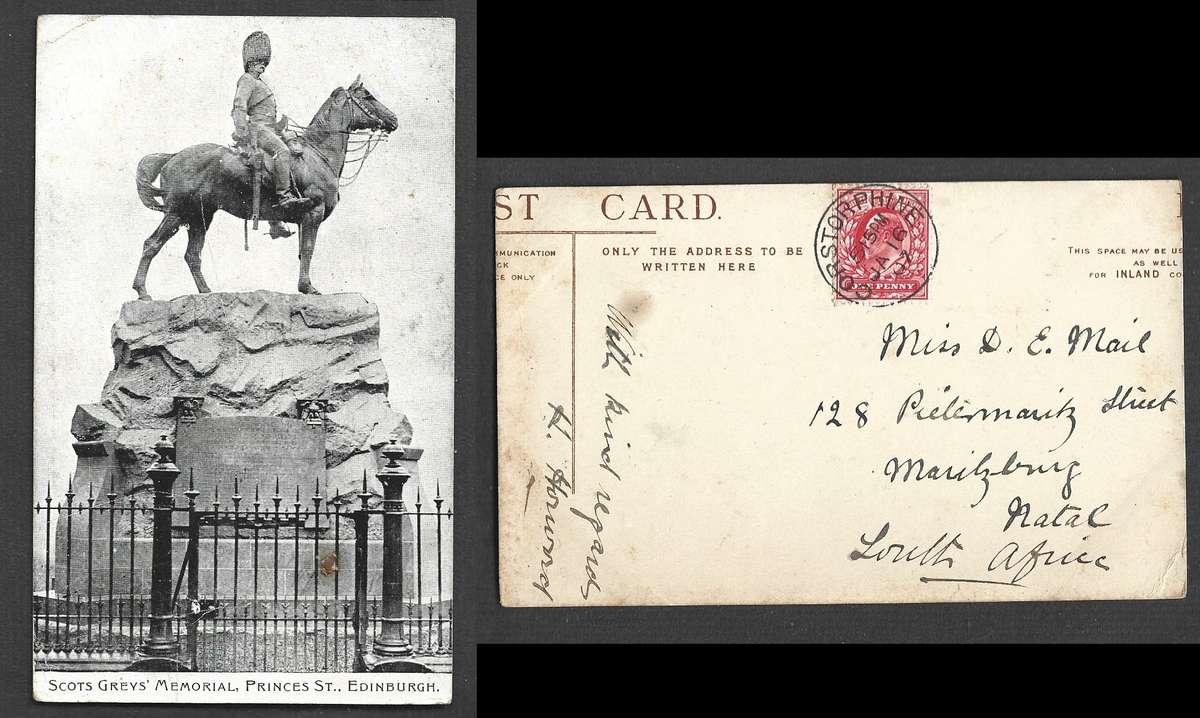 SCOTS GREYS' MEMORIAL, PRINCES ST., EDINBURGH.
ST CARD.
MMUNICATION
CK
CE ONLY
ONLY THE ADDRESS TO BE
WRITTEN HERE
THIS SPACE MAY BE US
AS WELL
FOR INLAND CO
CORSTORPHINE
15PM
JA 16
07
ONE PENNY
With kind regards
Miss D. E. Mail
128 Pietermaritz Street
Maritzburg
Natal
South Africa